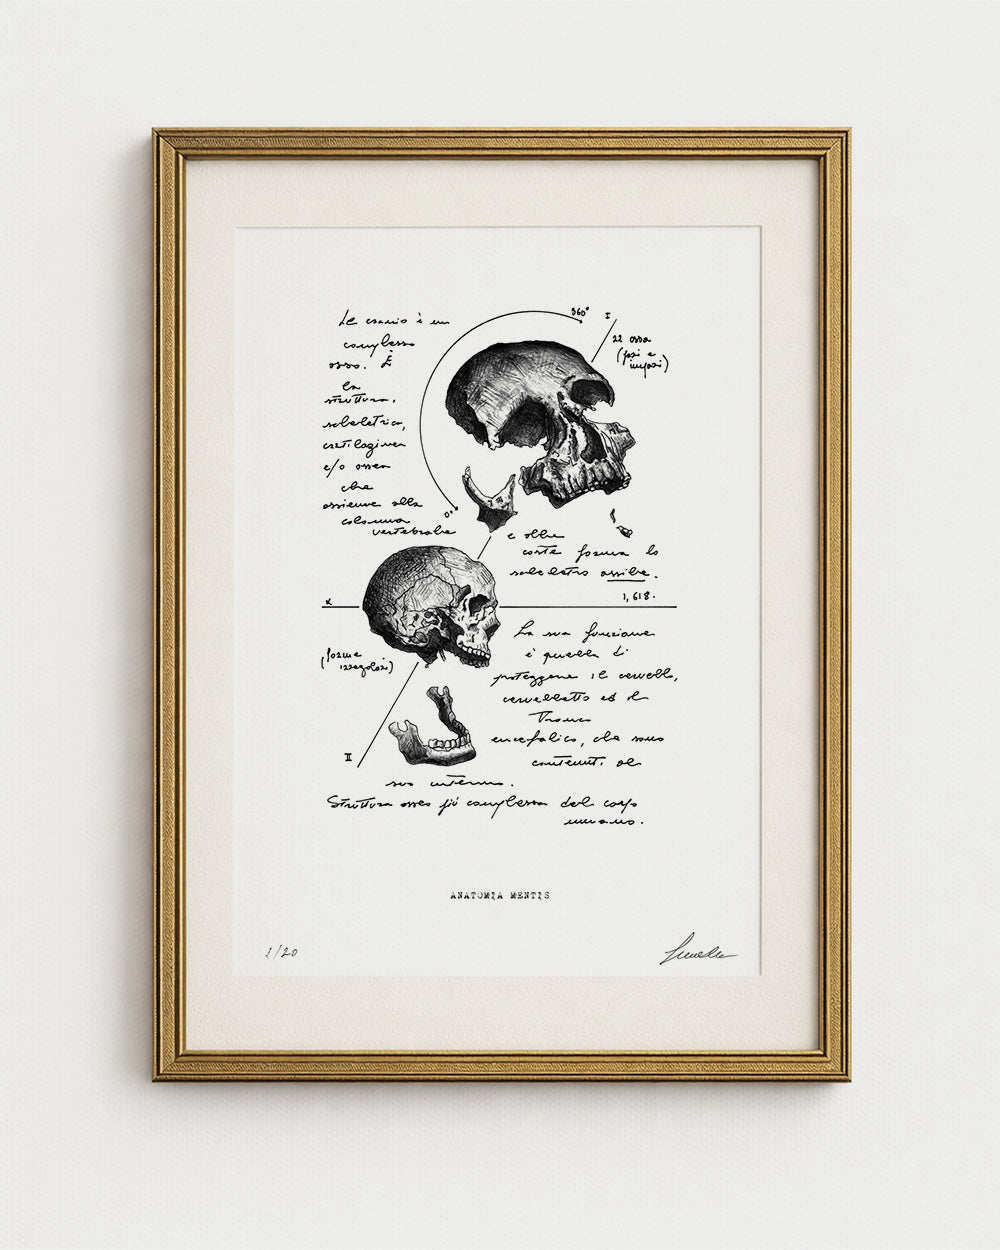 360°
I
Il cranio è un
22 ossa
complesso
(pari e
osso. È
impari)
la
struttura,
scheletrica,
cartilaginea
e/o ossea
che
assieme alla
colonna
vertebrale
0°
e alle
coste forma lo
scheletro assile.
1,618.
x
La sua funzione
(forme
irregolari)
è quella di
proteggere il cervello,
cervelletto ed il
Tronco
encefalico, che sono
II
contenuti al
suo interno.
Struttura ossea più complessa del corpo
umano.
ANATOMIA MENTIS
1/20